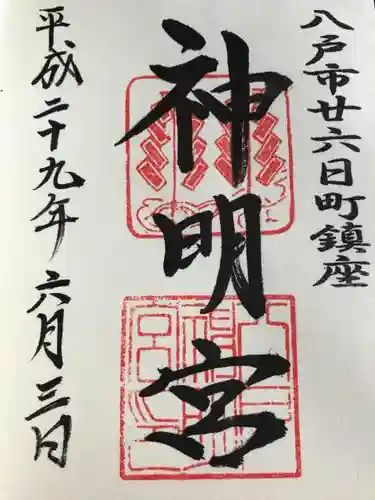 八戸市廿六日町鎮座
神明宮
平成二十九年 六月三日